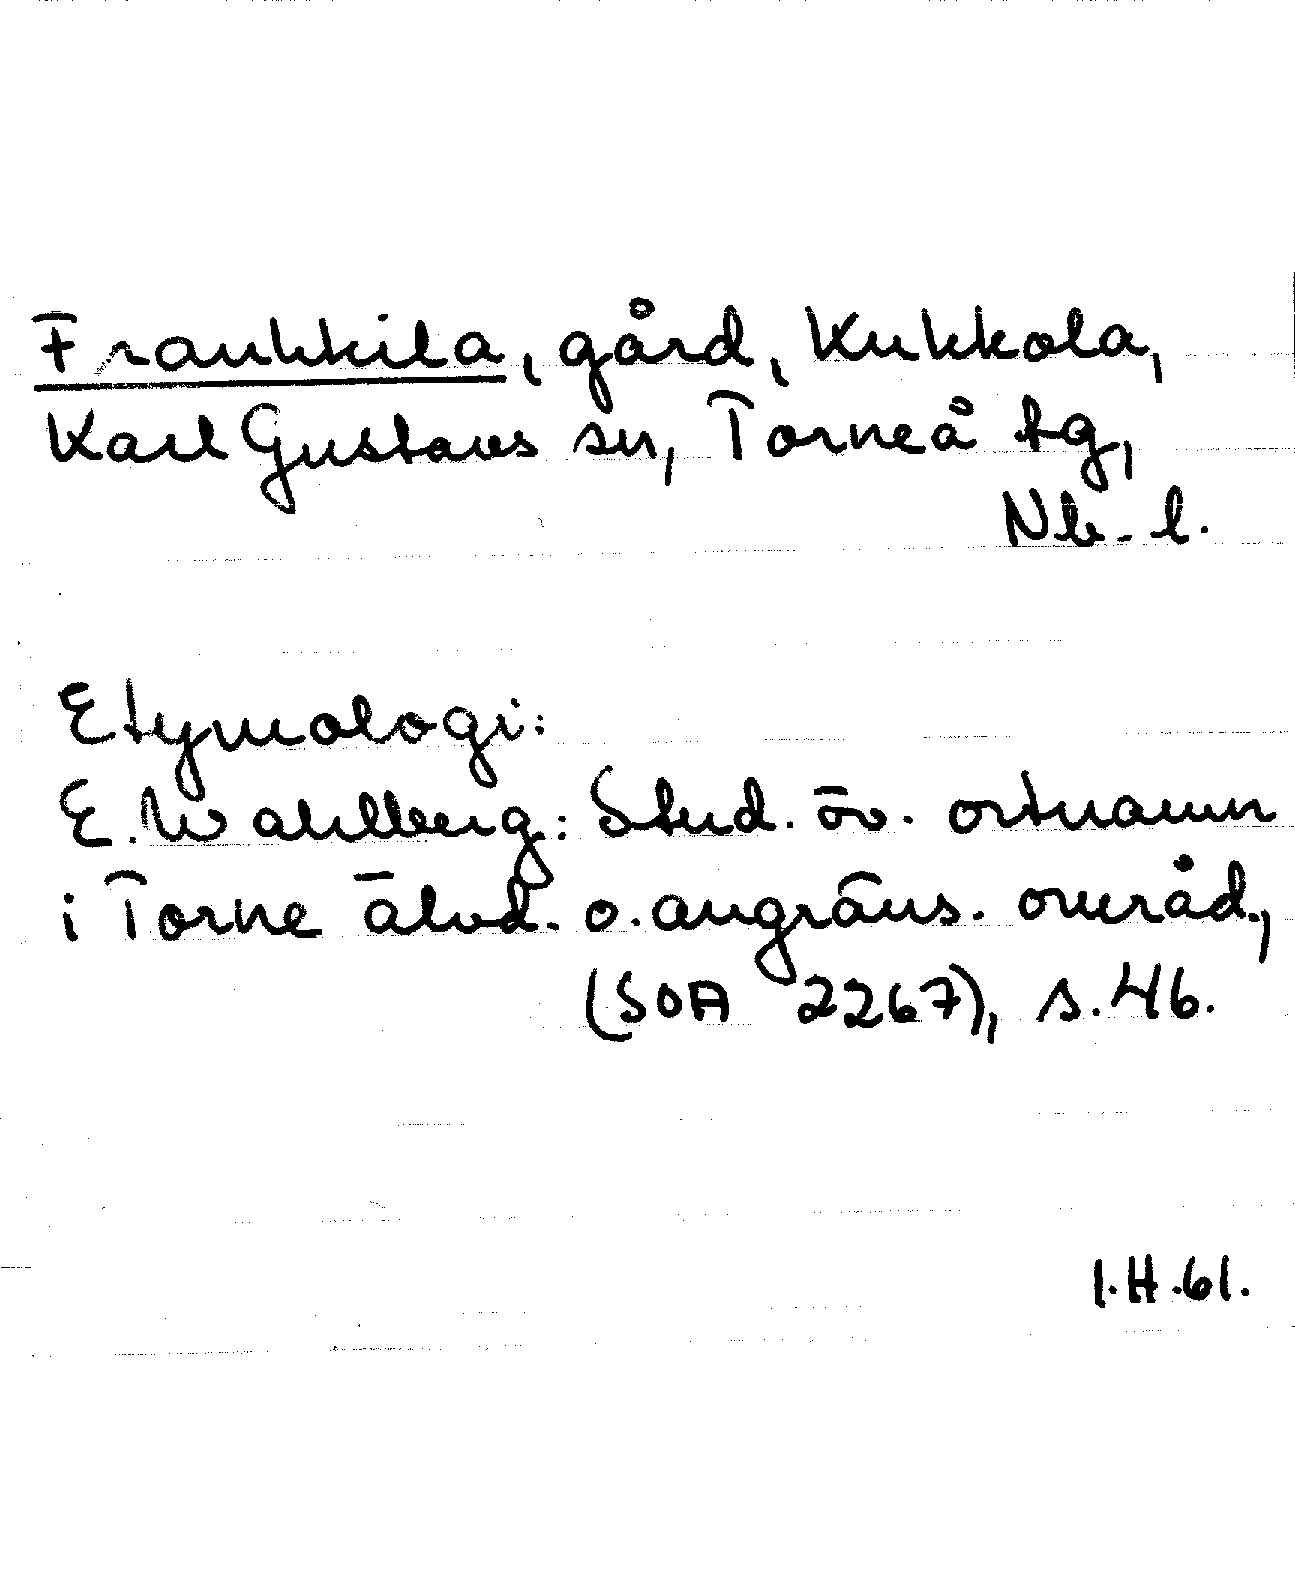 Fraukkila, gård, Kukkola,
Karl Gustavs sn, Torneå tg,
Nb. l.
Etymologi:
E. Wahlberg: Stud. öv. ortnamn
i Torne älvd. o. angräns. områd.,
(SOA 2267), s. 46.
I.H.61.